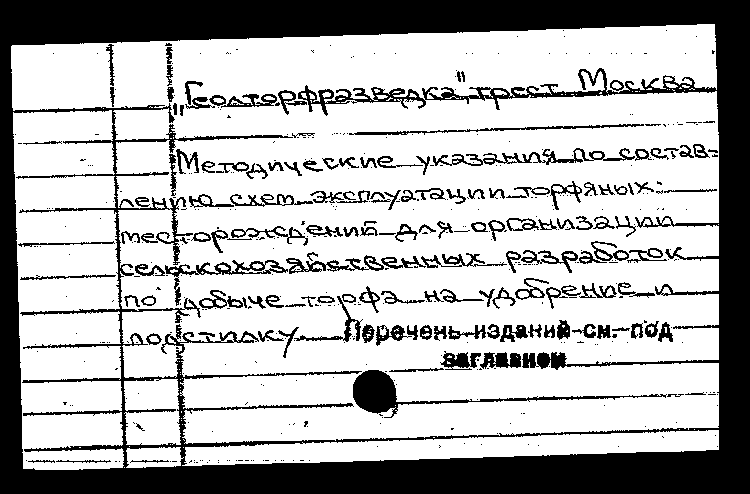 "Геолторфразведка", трест. Москва
Методические указания по состав-
лению схем эксплуатации торфяных
месторождений для организации
сельскохозяйственных разработок
по добыче торфа на удобрение и
подстилку. Перечень изданий см. под
заглавием